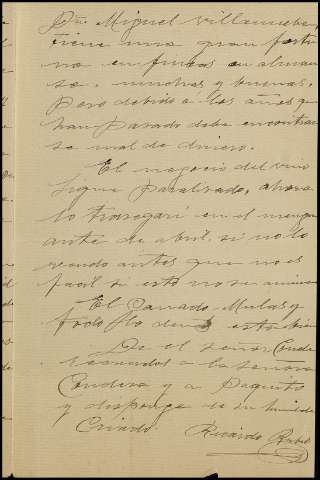 Dn. Miguel Villanueba,
tiene una gran fortu
na en fincas en
se. muchas y buenas.
Pero debido á los años que
han pasado debe encontrar
se mal de dinero.
El negocio del vino
sigue paralizado, ahora
lo trasegaré en el mengu
ante de abril, si no lo
vendo antes que no es
facil si esto no se
El Ganado Mulas y
todo lo esta bien
De el señor Conde
recuerdos a la señora
Condesa y a Paquito
y disponga de su humilde
Criado. Ricardo